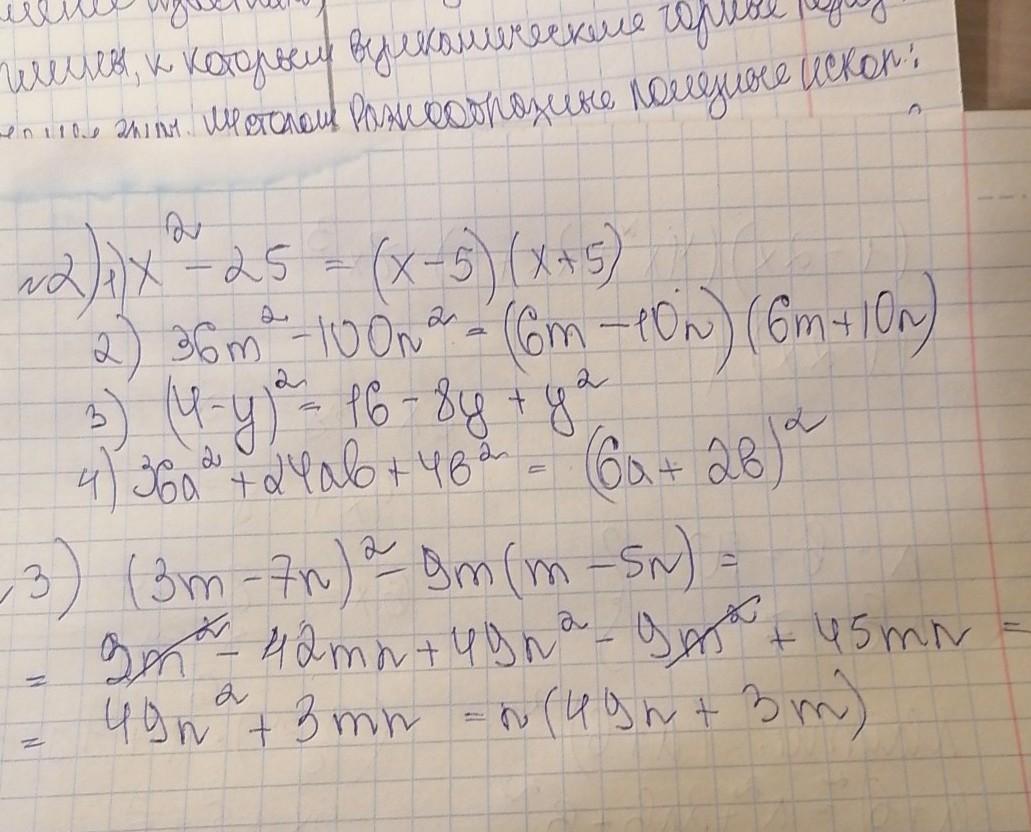 к которым вулканические горные
разнообразные полезные ископ:
№2) 1) x² - 25 = (x-5) (x+5)
2) 36m² - 100n² = (6m - 10n) (6m + 10n)
3) (4-y)² = 16 - 8y + y²
4) 36a² + 24ab + 4b² = (6a + 2b)²
3) (3m - 7n)² - 9m(m - 5n) =
= 9m² - 42mn + 49n² - 9m² + 45mn =
= 49n² + 3mn = n(49n + 3m)